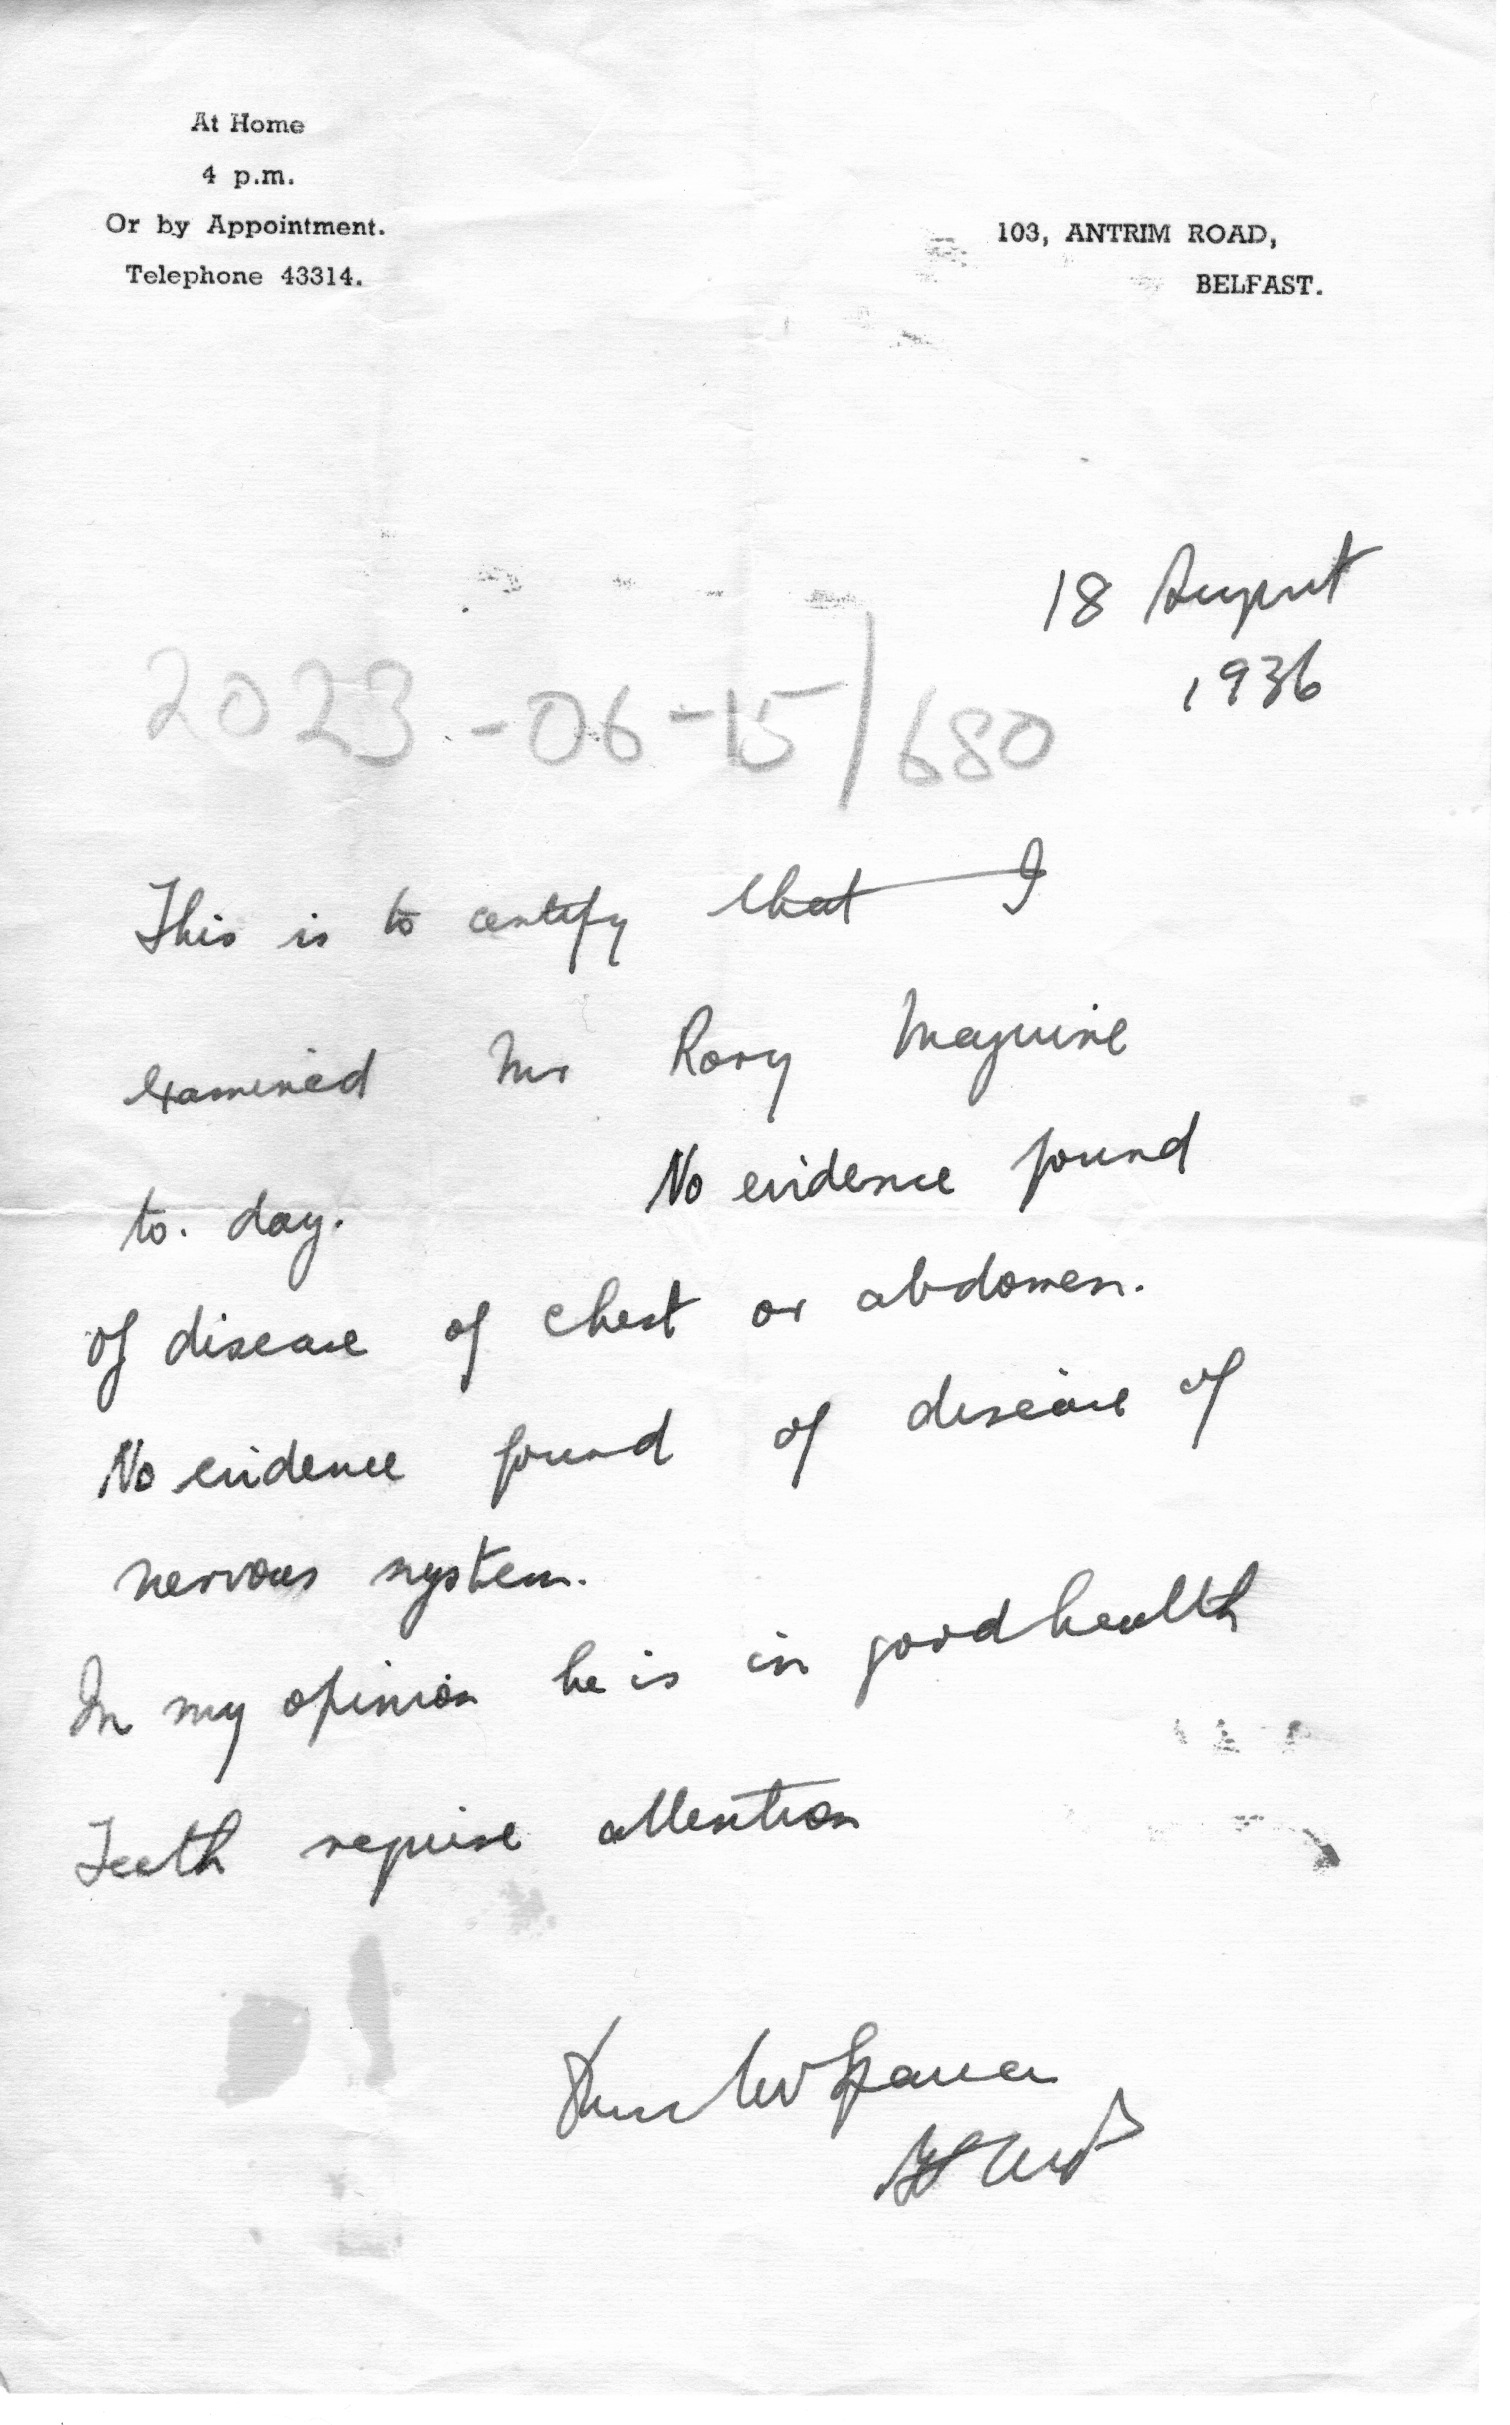 At Home
4 p.m.
Or by Appointment.
Telephone 43314.
103, ANTRIM ROAD,
BELFAST.
18 August
1936
2023-06-15/680
This is to certify that I
examined Mr Rory Maguire
to. day. No evidence found
of disease of chest or abdomen.
No evidence found of disease of
nervous system.
In my opinion he is in good health
Teeth require attention